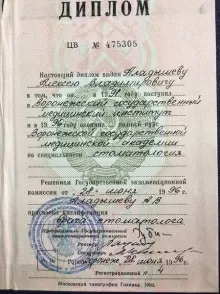 ДИПЛОМ
ЦВ № 475305
Настоящий диплом выдан Гладышеву
Алексею Владимировичу
в том, что он в 1991 поступил
Воронежский государственный
медицинский институт
и в 1996 окончил полный курс
Воронежской государственной
медицинской академии
по специальности стоматология
Решением Государственной экзаменационной
комиссии от 28 июня 1996 г.
Гладышеву А В
присвоена квалификация
врача стоматолога
Председатель Государственной
экзаменационной комиссии
Ректор
Секретарь
Город Воронеж 28 июня 1996 г.
Регистрационный № 4
Московская типография Гознака. 1992.